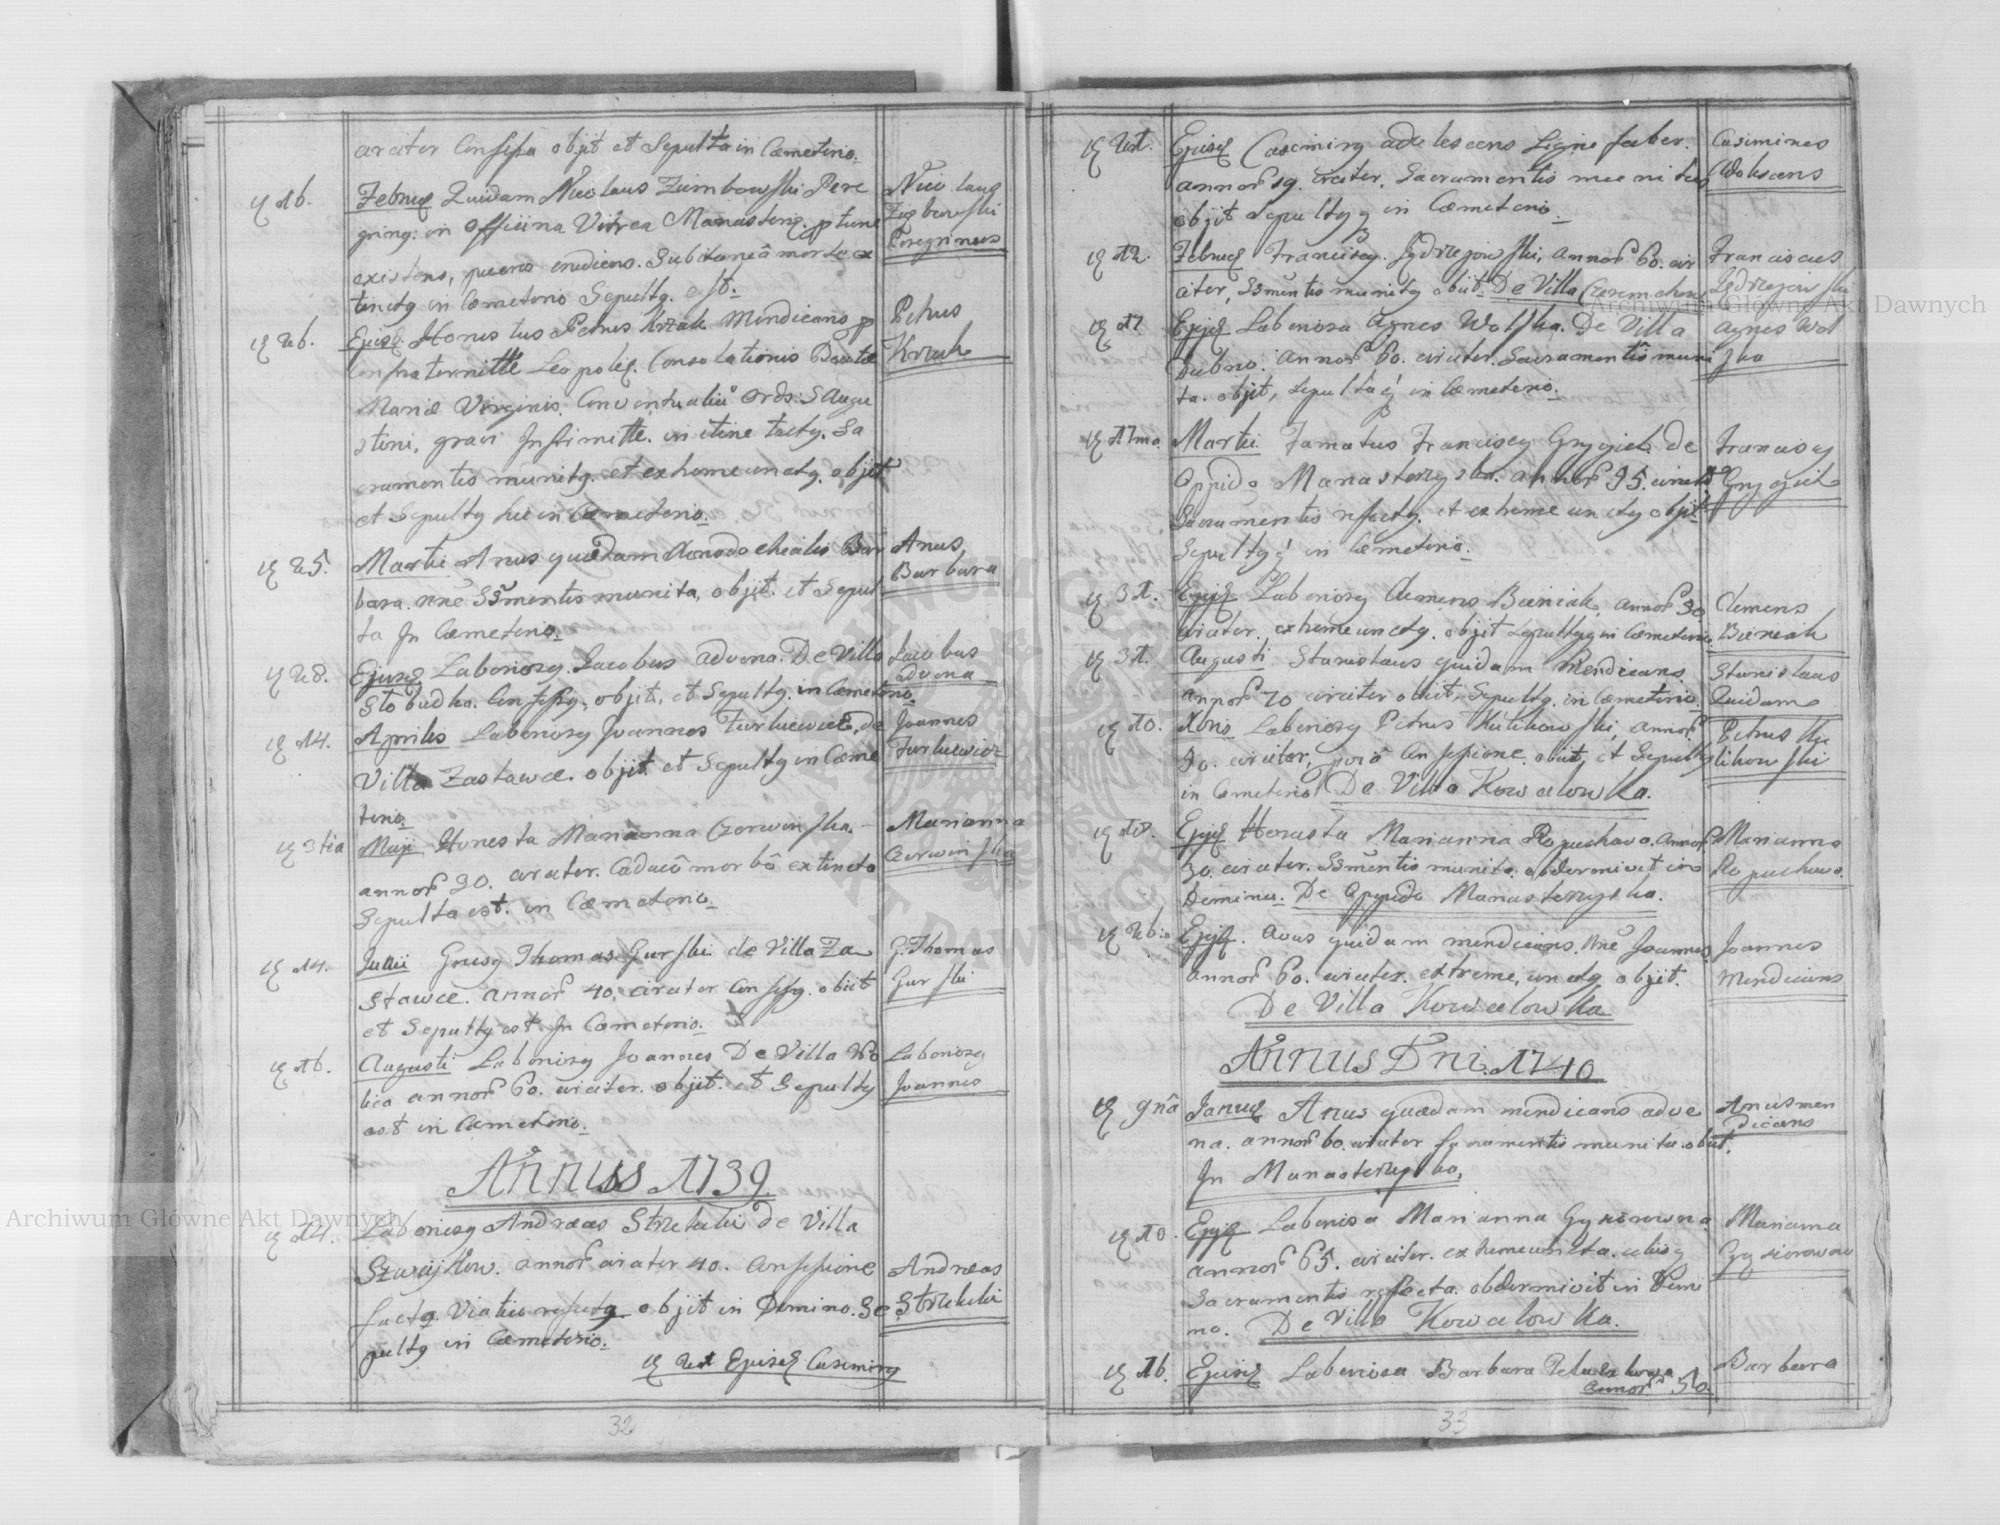 circiter Confessa objit et Sepulta in Cæmeterio.
16. Februæ Quidam Nicolaus Zimbowski Pere
gring. in officina Vitrea Manaster.
existens, puero erudiens. Subitaneâ morte ex
tinctg in Cæmeterio Sepultg. est.
Nicolaus
Zigbowski
Peregrinus
26. Ejusd. Honestus Petrus Krzak Mendicans
Confraternitte Leopoliẽ. Consolationis Beatæ
Mariæ Virginis. Conventualiũ Ords. S Augu
stini, gravi Infirmitte. in itine tactg. Sa
cramentis munitg. et extreme unctg. objit
et Sepultg hic in Cæmeterio.
Petrus
Krzak
25. Martii Anus quædam Bar
bara nñe SSmentis munita, objit. et Sepul
ta In Cæmeterio.
Anus
Barbara
28. Ejusd. Laboriosg. Jacobus advena. De Villa
Słobudka. Confessg, objit, et Sepultg. in Cæmeterio
Jacobus
advena
14. Aprilis Laboriosg Joannes Furkiewicz, De
Villa Zastawce. objit et Sepultg in Cæme
terio
Joannes
Furkiewicz
3tia Maji Honesta Marianna Czerwinska.
annor 30. circiter. Caducô morbô extincta
Sepulta est. in Cæmeterio
Marianna
Czerwinska
14. Julii Gnrsg Thomas Gurski de Villa Za
stawce. annor 40, circiter Confessg. obiit
et Sepultg est. In Cæmeterio.
G. Thomas
Gurski
16. Augusti Laboriosg Joannes De Villa Wo
lica annor 60. circiter. objit. et Sepultg
est in Cæmeterio.
Laboriosg
Joannes
ANNUS 1739
14. Laboriosg Andræas Strzelecki de Villa
Szwejkow. annor circiter 40. Confessione
factg. Viatico refectg objit in Domino. Se
pultg in Cæmeterio.
Andræas
Strzelecki
Ejusd Casimirg
32
Ejusd Casimirg adolescens Ligni faber.
annor 19. circiter. Sacramentis munitus
objit Sepultg g in Cæmeterio.
Casimirus
Adolescens
12. Februæ Franciscg. Jędrzejowski, annor 60. cir
citer, SSmentis munitg obiit. De Villa Czeremchow
Franciscus
Jędrzejowski
17 Ejusd Laboriosa Agnes Wolska. De Villa
Dubno. annor 60. circiter. Sacramentis muni
ta. objit, Sepulta ẽ in Cæmeterio.
Agnes Wol
ska
17ma Martii Famatus Franciscg Grygiel de
Oppido Manasterzyska. annor 95. circit
Sacramentis refectg. et extreme unctg objit
Sepultg ẽ in Cæmeterio.
Franciscg
Grygiel
31. Ejusd Laboriosg Clemens Bieniak, annor 30
circiter. extreme unctg. objit Sepultg g in Cæmeterio.
Clemens
Bieniak
31. Augusti Stanislaus quidam Mendicans
annor 70 circiter obiit, Sepultg. in Cæmeterio
Stanislaus
Quidam
10. Xbris Laboriosg Petrus Kulikowski, annor.
30. circiter, Confessione obiit, et Sepultg
in Cæmeterio De Villa Kowalowka.
Petrus Ku
likowski
18. Ejusd Honesta Marianna Ropuchowa. annor.
30. circiter. SSmentis munita. obdormivit in
Domino. De Oppido Manasterzyska.
Marianna
Ropuchowa.
26. Ejusd. Avus quidam mendicans. nñe Joannes.
annor 60. circiter. extreme, unctg objit.
De Villa Kowalowka
Joannes
Mendicans
ANNUS Dni. 1740
9na Januæ Anus quædam mendicans adve
na. annor 60. circiter Sacramentis munita. obiit.
In Manasterzyska,
Anus men
dicans
10. Ejusd Laboriosa Marianna
annor 65. circiter. extreme uncta. aliisg
Sacramentis refecta. obdormivit in Domi
no. De Villa Kowalowka.
Marianna
16. Ejusd Laboriosa Barbara
annor 50.
Barbara
33
Archiwum Główne Akt Dawnych
Archiwum Główne Akt Dawnych
ARCHIWUM GŁÓWNE AKT DAWNYCH